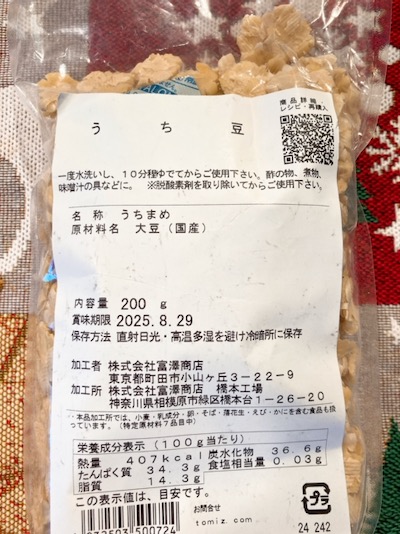 商品詳細
レシピ・再購入
うち豆
一度水洗いし、10分程ゆでてからご使用下さい。酢の物、煮物、
味噌汁の具などに。 ※脱酸素剤を取り除いてからご使用下さい。
名称 うちまめ
原材料名 大豆(国産)
内容量 200 g
賞味期限 2025.8.29
保存方法 直射日光・高温多湿を避け冷暗所に保存
加工者 株式会社富澤商店
東京都町田市小山ヶ丘3-22-9
加工所 株式会社富澤商店 橋本工場
神奈川県相模原市緑区橋本台1-26-20
・本品加工所では、小麦・乳成分・卵・そば・落花生・えび・かにを含む食品も扱
っています。(特定原材料7品目中)
栄養成分表示(100g当たり)
熱量 407kcal 炭水化物 36.6g
たんぱく質 34.3g 食塩相当量 0.03g
脂質 14.3g
この表示値は、目安です。
お問合せ
tomiz.com
プラ
24 242